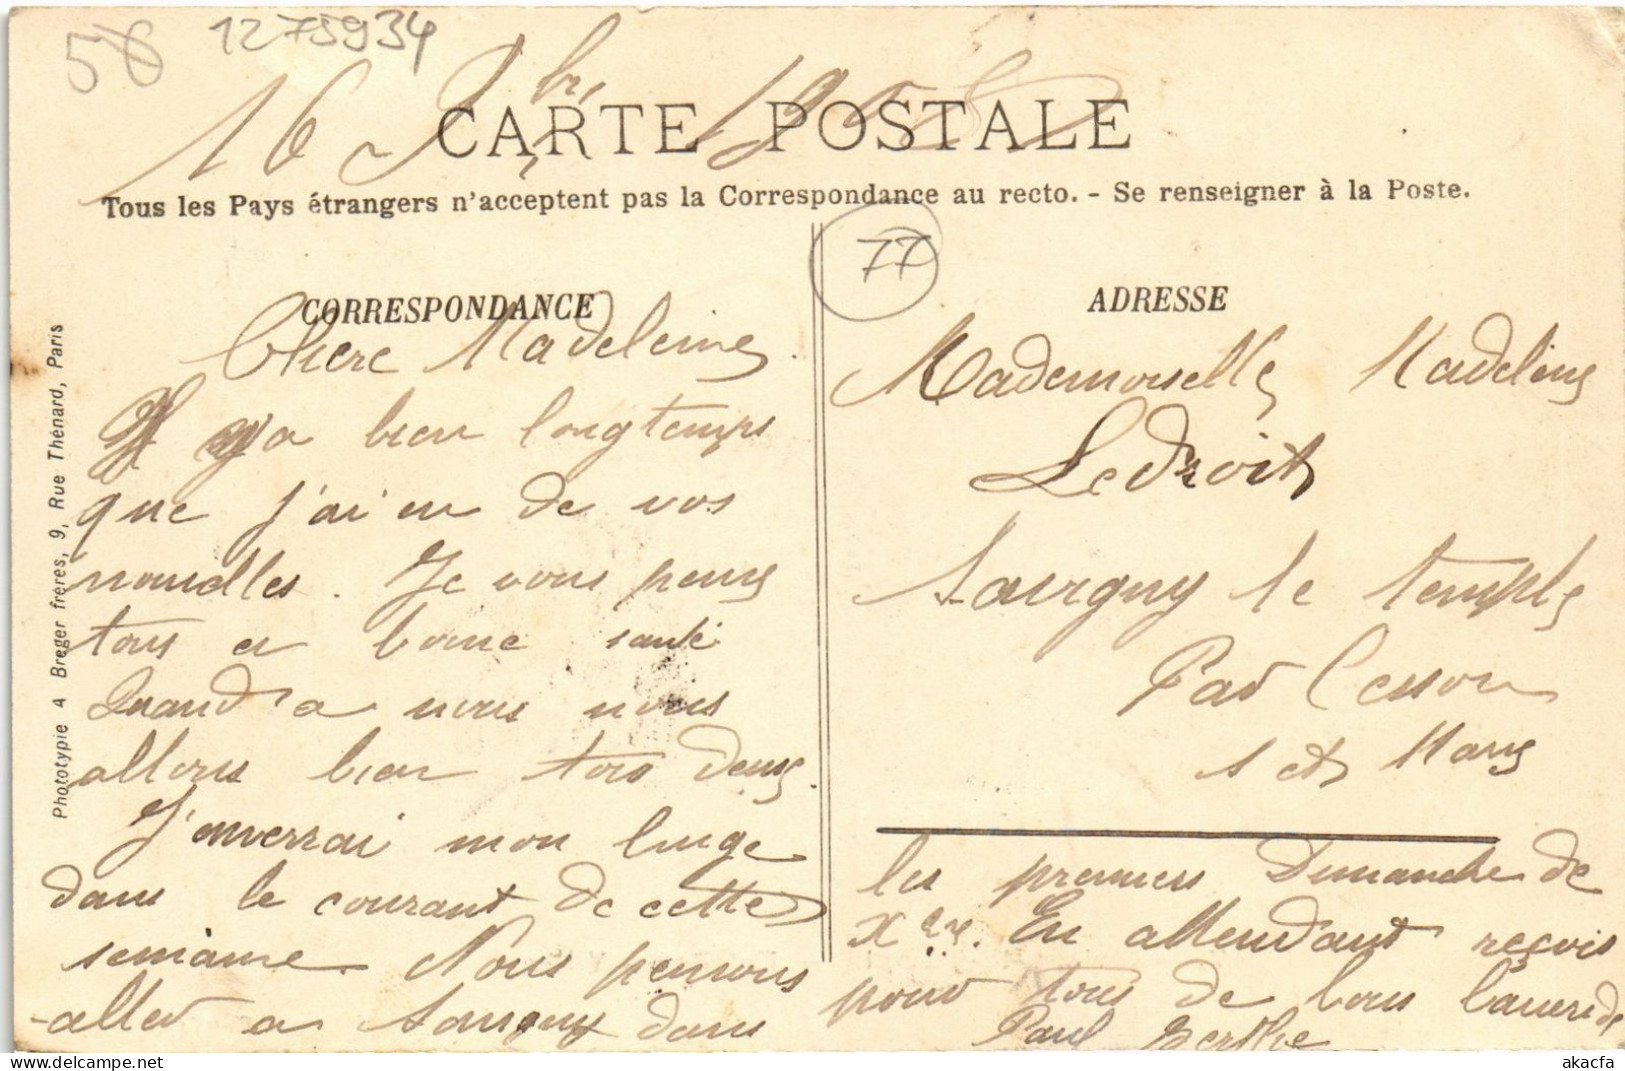 56
1275934
16
CARTE POSTALE
Tous les Pays étrangers n'acceptent pas la Correspondance au recto. - Se renseigner à la Poste.
77
CORRESPONDANCE
Chere Madeleine
Il y a bien longtemps
que j'ai eu de vos
nouvelles. Je vous pense
tous en bonne santé
Quand a nous nous
allons bien tous deux.
J'enverrai mon linge
dans le courant de cette
semaine. Nous pensons
aller a Savigny dans
ADRESSE
Mademoiselle Madeleine
Ledroit
Savigny le temple
Par Cesson
S et Marne
les premiers Dimanche de
Xbre. En attendant reçois
pour tous de bons baisers de
Paul Berthe
Phototypie A Breger frères, 9, Rue Thénard, Paris
akacfa